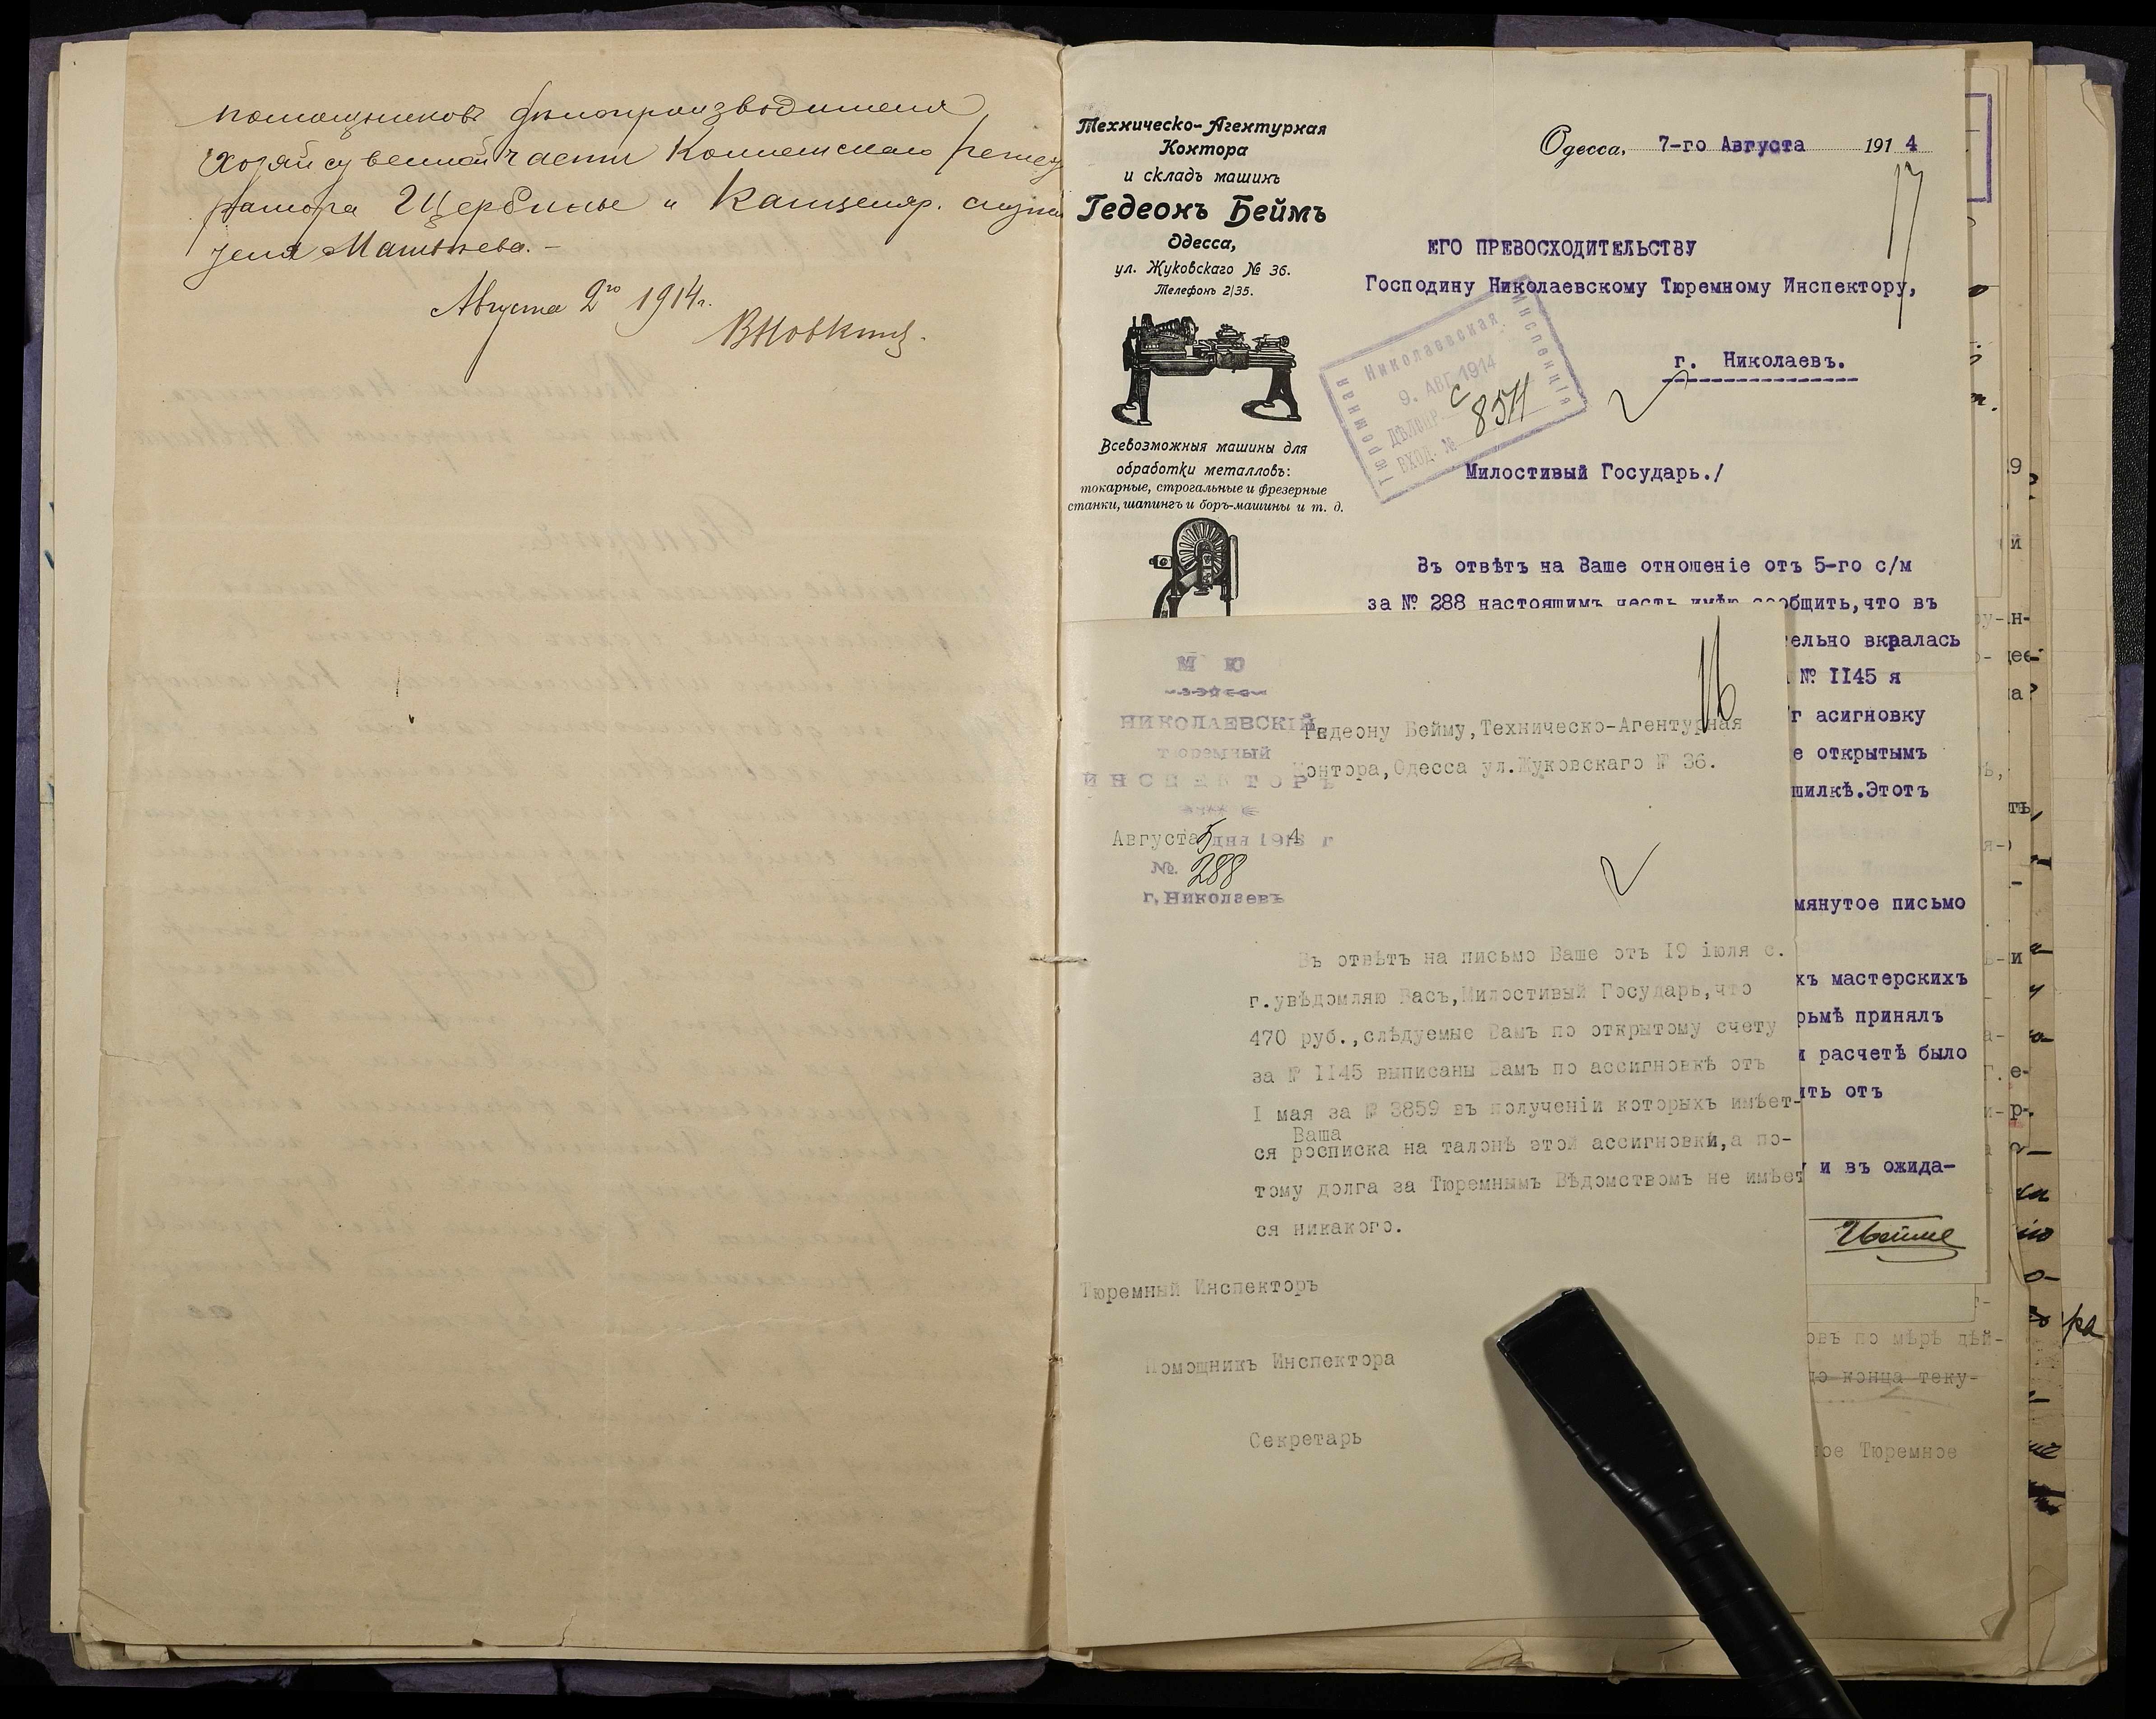 помощниковъ дѣлопроизводителя
хозяйственной части Коллежскаго регист
ратора Щербины и Канцеляр. служи
теля Матвѣева. –
Августа 2го 1914г.
Техническо-Агентурная
Контора
и складъ машинъ
Гедеонъ Беймъ
Одесса,
ул. Жуковскаго № 36.
Телефонъ 2|35.
Всевозможныя машины для
обработки металловъ:
токарные, строгальные и фрезерные
станки, шапингъ и боръ-машины и т. д.
Одесса, 7-го Августа 1914
17
ЕГО ПРЕВОСХОДИТЕЛЬСТВУ
Господину Николаевскому Тюремному Инспектору,
г. Николаевъ.
Николаевская
Тюремная
Инспекція
9. АВГ. 1914
ДѢЛОПР. С
ВХОД. № 8511
Милостивый Государь./
Въ отвѣтъ на Ваше отношеніе отъ 5-го с/м
за № 288 настоящимъ честь имѣю сообщить,что въ
ельно вкралась
№ II45 я
г асигновку
е открытымъ
шилкѣ.Этотъ
мянутое письмо
хъ мастерскихъ
рьмѣ принялъ
и расчетѣ было
ить отъ
у и въ ожида-
16
М Ю
НИКОЛАЕВСКІЙ
Тюремный
ИНСПЕКТОРЪ
Августа 5 дня 1914 г
№. 288
г. Николаевъ
Гедеону Бейму,Техническо-Агентурная
Контора,Одесса ул.Жуковскаго № 36.
Въ отвѣтъ на письмо Ваше отъ I9 іюля с.
г.увѣдомляю Васъ,Милостивый Государь,что
470 руб.,слѣдуемые Вамъ по открытому счету
за № II45 выписаны Вамъ по ассигновкѣ отъ
I мая за № 3859 въ полученіи которыхъ имѣет-
Ваша
ся росписка на талонѣ этой ассигновки,а по-
тому долга за Тюремнымъ Вѣдомствомъ не имѣет
ся никакого.
Тюремный Инспекторъ
Помощникъ Инспектора
Секретарь
овъ по мѣрѣ дѣй-
до конца теку-
ное Тюремное
ра